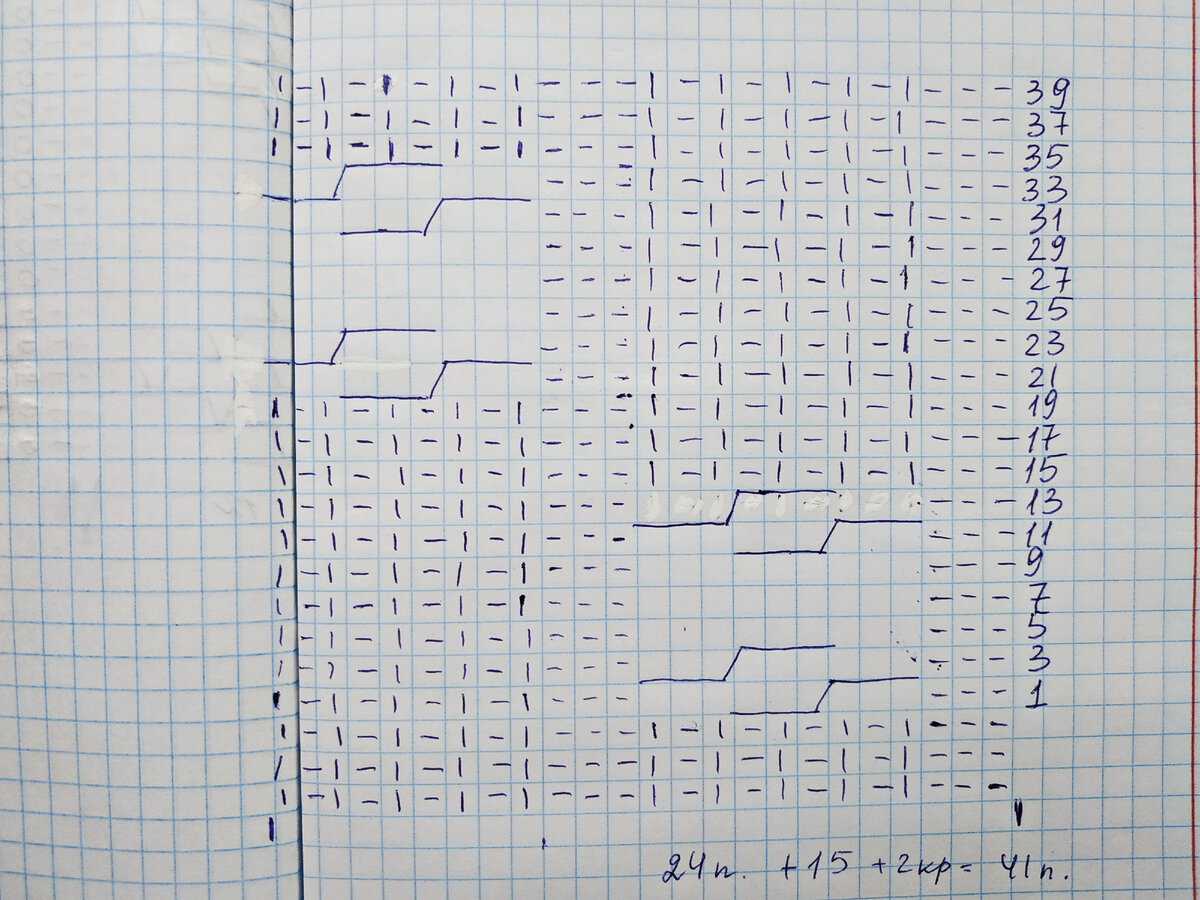 39
37
35
33
31
29
27
25
23
21
19
17
15
13
11
9
7
5
3
1
24п. +15 +2кр= 41п.